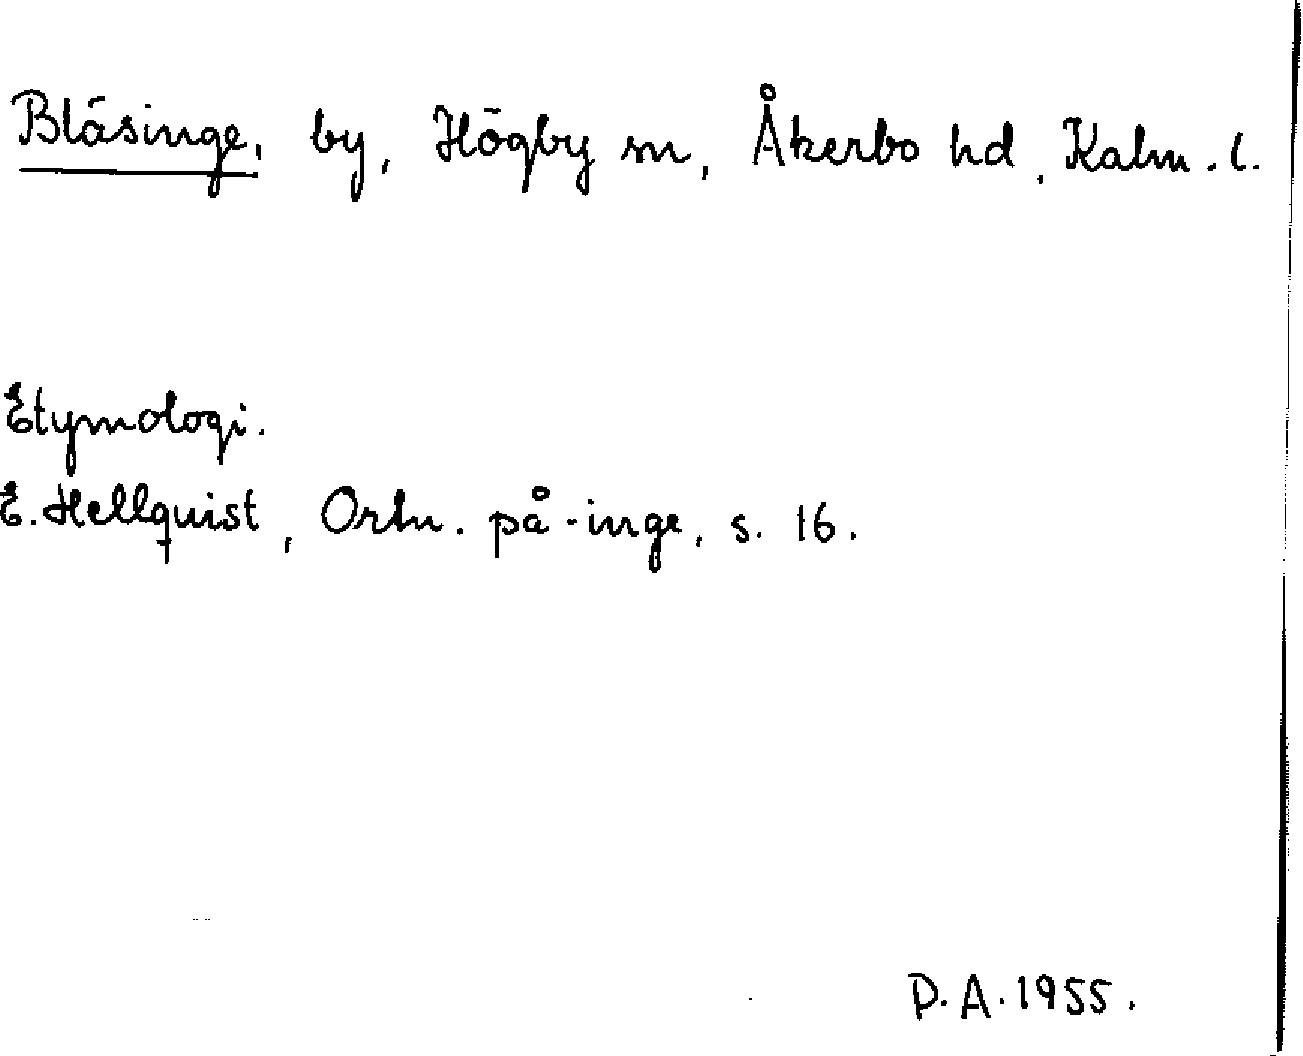 Bläsinge, by, Högby sn, Åkerbo hd, Kalm. l.
Etymologi.
E. Hellquist, Ortn. på -inge, s. 16.
D. A. 1955.